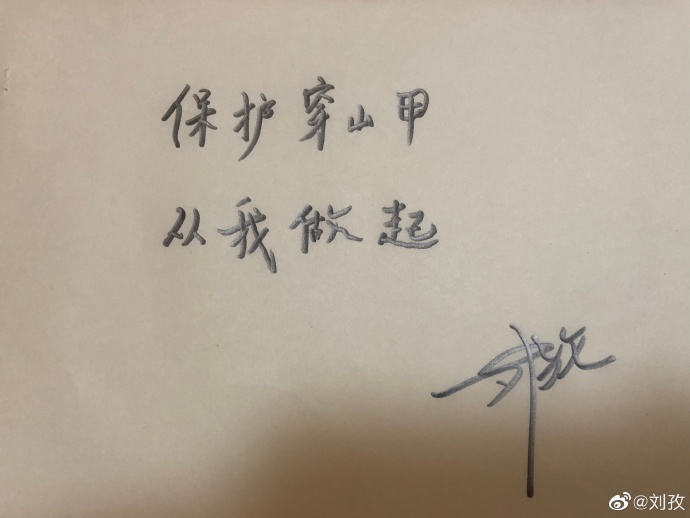 保护穿山甲
从我做起
刘孜
@刘孜